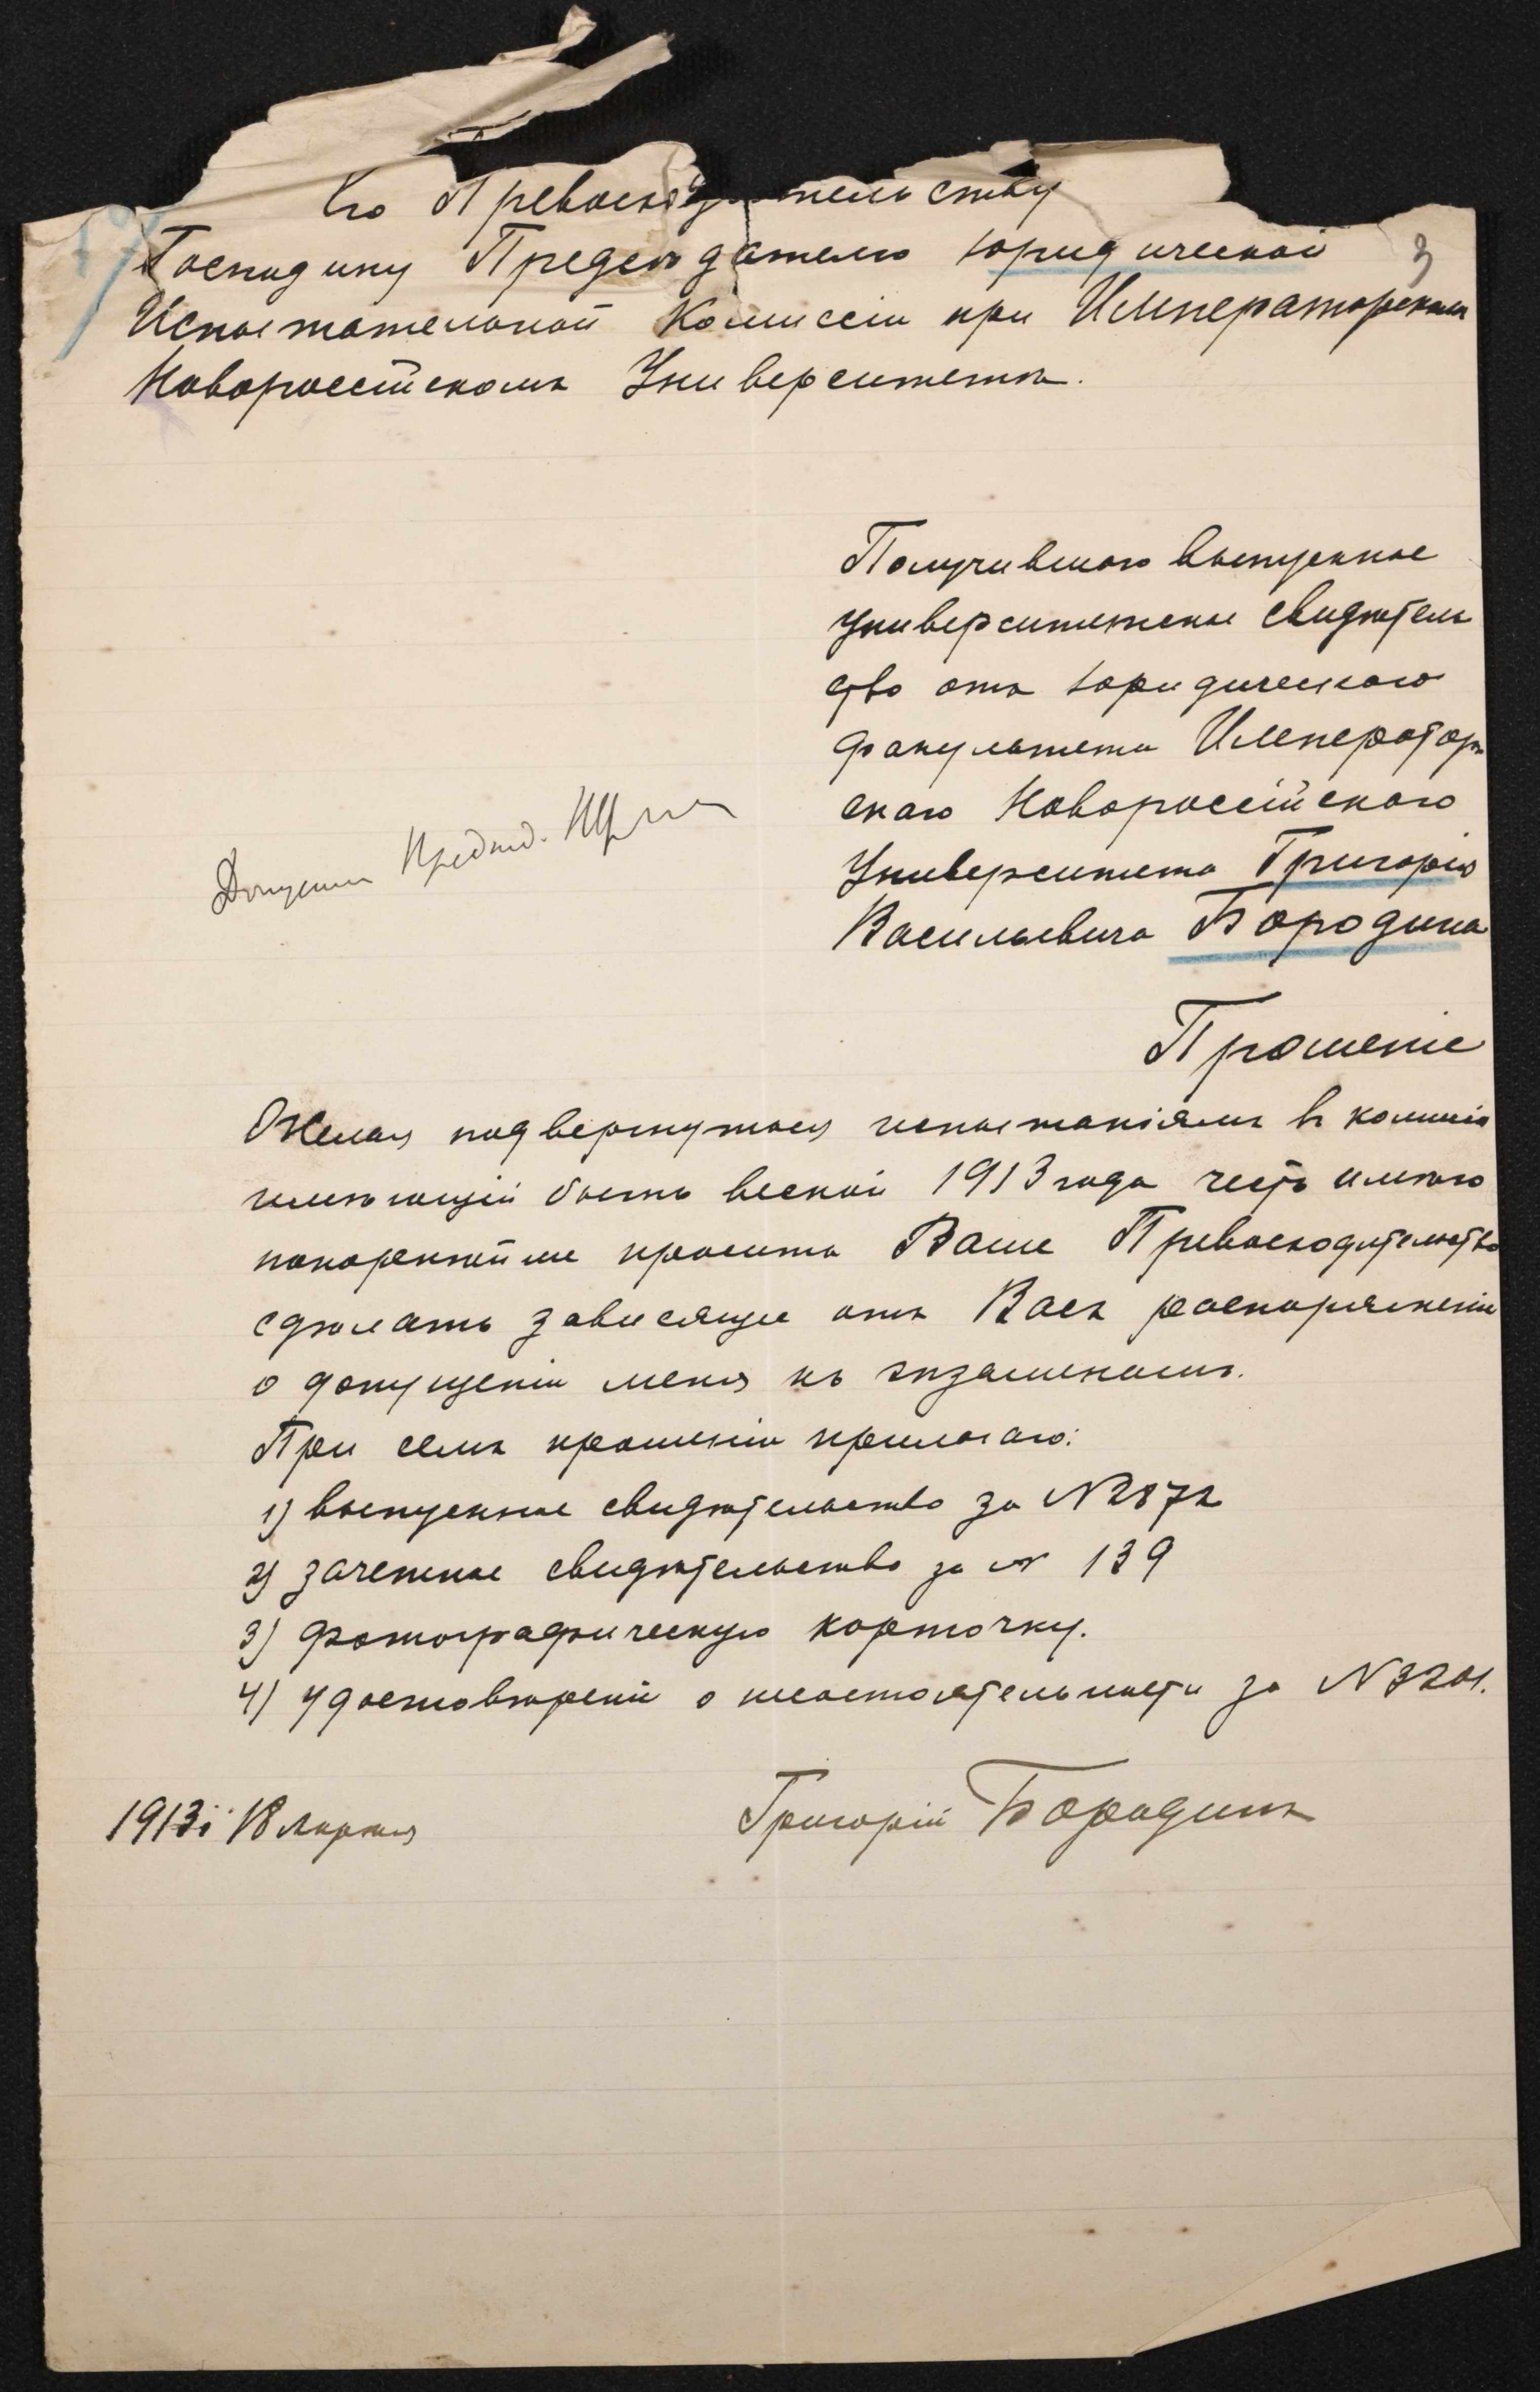 Его Превосходительству
Господину Председателю Юридической
3
Испытательной Комиссіи при Императорскомъ
Новороссійскомъ Университетѣ.
Получившаго выпускное
университетское свидѣтель
ство отъ юридическаго
факультета Император
скаго Новороссійскаго
Университета Григорія
Васильевича Бородина
Допустить Предсѣд.
Прошеніе
Желая подвергнуться испытаніямъ въ комиссіи
имѣющей быть весной 1913 года честь имѣю
покорнѣйше просить Ваше Превосходительство
сдѣлать зависящее отъ Васъ распоряженіе
о допущеніи меня къ экзаменамъ.
При семъ прошеніи прилагаю:
1) выпускное свидѣтельство за №2872
2) зачетное свидѣтельство за № 139
3) фотографическую карточку.
4) удостовѣреніе о несостоятельности за №3201.
1913 18 марта
Григорій Бородинъ